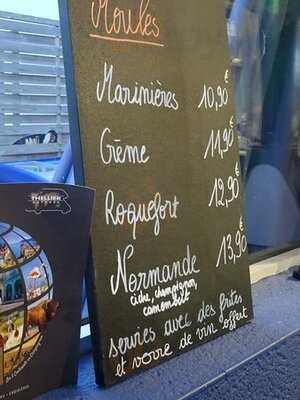 Moules
Marinières 10,90€
Crème 11,90€
Roquefort 12,90€
Normande 13,90€
cidre, champignon,
camembert
servies avec des frites
et verre de vin offert
THELLIER